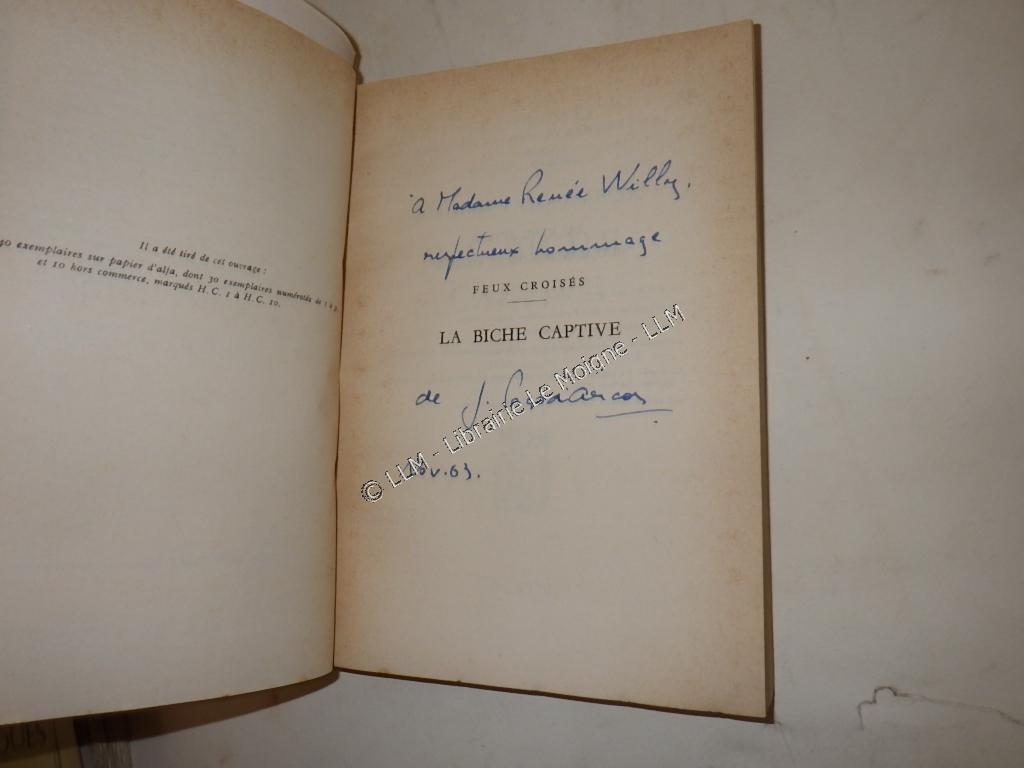 Il a été tiré de cet ouvrage :
40 exemplaires sur papier d'alfa, dont 30 exemplaires numérotés de 1 à
et 10 hors commerce, marqués H. C. 1 à H. C. 10.
à Madame Renée Willy,
respectueux hommage
FEUX CROISÉS
LA BICHE CAPTIVE
de J.
Nov. 63.
© LLM - Librairie Le Moigne - LLM